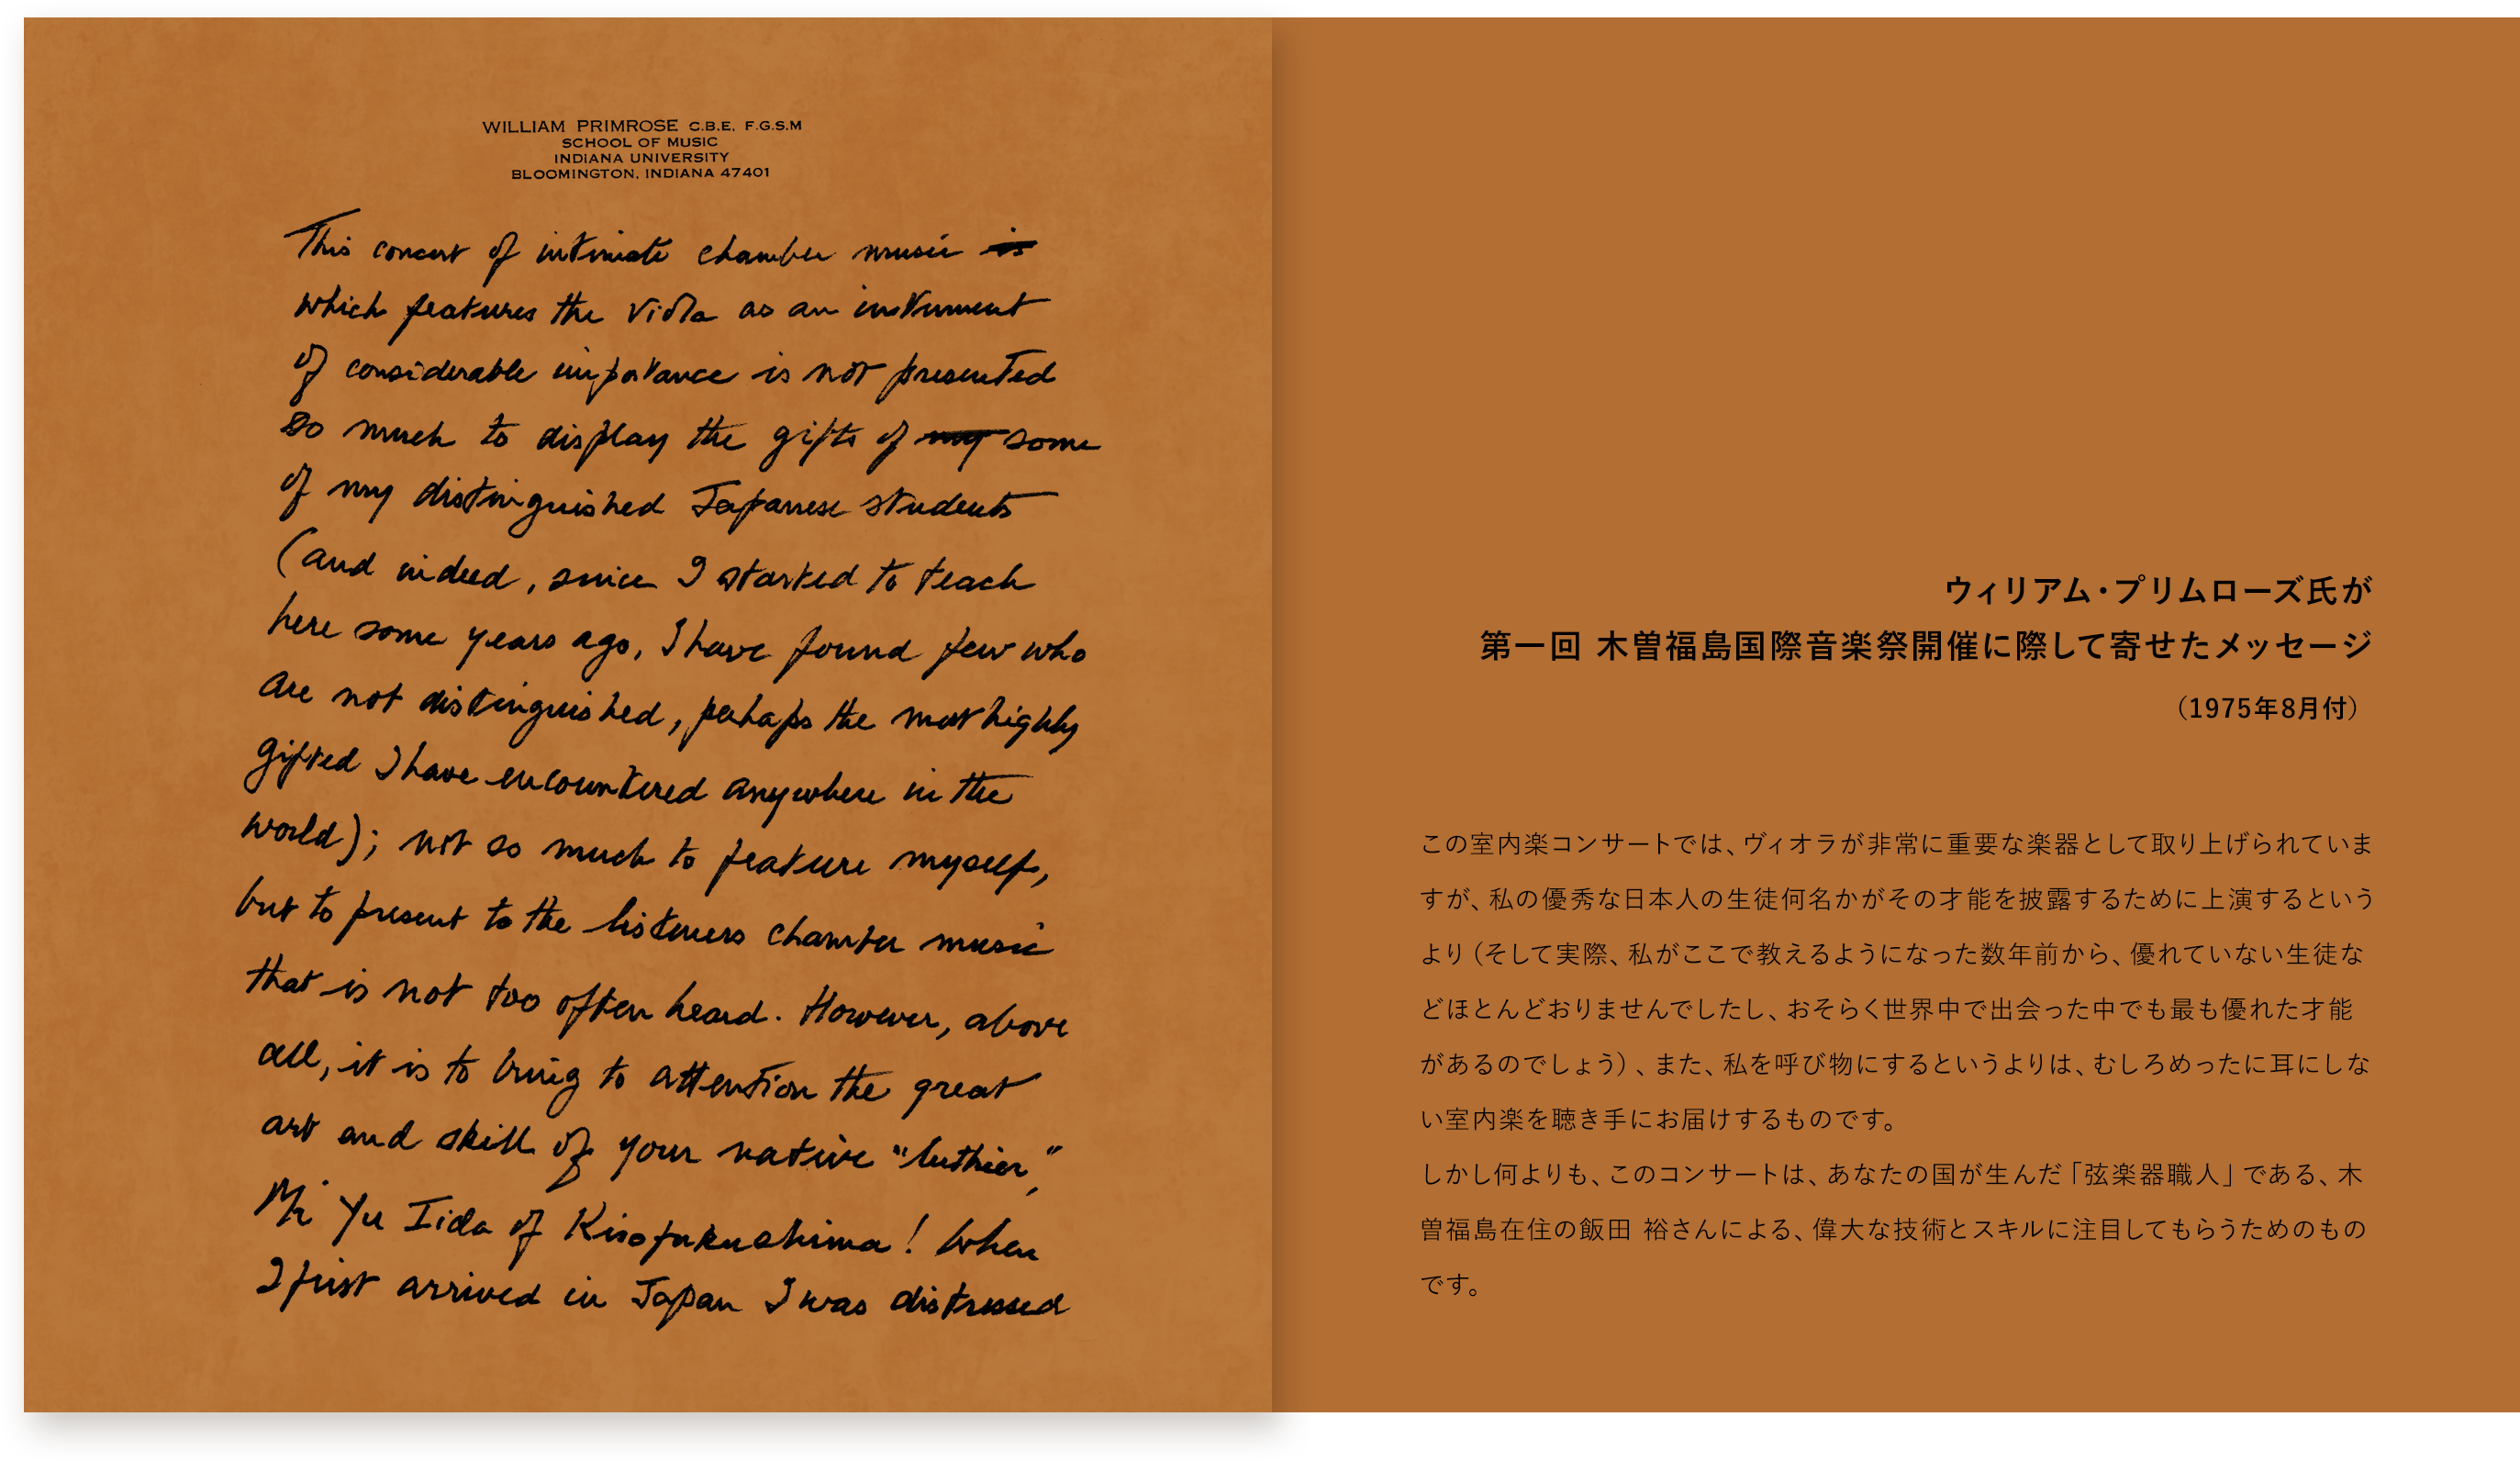 WILLIAM PRIMROSE C.B.E. F.G.S.M
SCHOOL OF MUSIC
INDIANA UNIVERSITY
BLOOMINGTON, INDIANA 47401
This concert of intimate chamber music is
which features the viola as an instrument
of considerable importance is not presented
so much to display the gifts of my some
of my distinguished Japanese students
(and indeed, since I started to teach
here some years ago, I have found few who
are not distinguished, perhaps the most highly
gifted I have encountered anywhere in the
world); not so much to feature myself,
but to present to the listeners chamber music
that is not too often heard. However, above
all, it is to bring to attention the great
art and skill of your native "luthier,"
Mr Yu Iida of Kisofukushima! When
I first arrived in Japan I was distressed
ウィリアム・プリムローズ氏が
第一回 木曽福島国際音楽祭開催に際して寄せたメッセージ
（1975年8月付）
この室内楽コンサートでは、ヴィオラが非常に重要な楽器として取り上げられていま
すが、私の優秀な日本人の生徒何名かがその才能を披露するために上演するという
より（そして実際、私がここで教えるようになった数年前から、優れていない生徒な
どほとんどおりませんでしたし、おそらく世界中で出会った中でも最も優れた才能
があるのでしょう）、また、私を呼び物にするというよりは、むしろめったに耳にしな
い室内楽を聴き手にお届けするものです。
しかし何よりも、このコンサートは、あなたの国が生んだ「弦楽器職人」である、木
曽福島在住の飯田 裕さんによる、偉大な技術とスキルに注目してもらうためのもの
です。